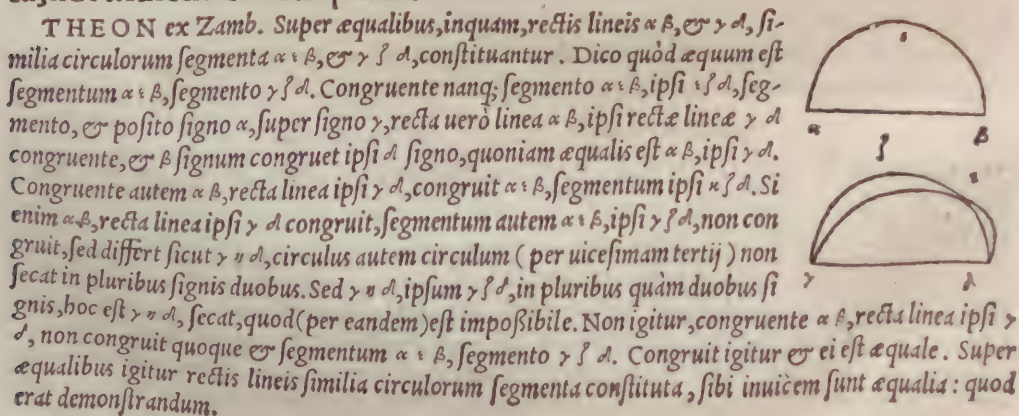 THEON ex Zamb. Super æqualibus, inquam, rectis lineis α β, & γ δ, ſi-
milia circulorum ſegmenta α ε β, & γ ζ δ, conſtituantur. Dico quòd æquum eſt
ſegmentum α ε β, ſegmento γ ζ δ. Congruente nanq; ſegmento α ε β, ipſi ε ζ δ, ſeg-
mento, & poſito ſigno α, ſuper ſigno γ, recta uerò linea α β, ipſi rectæ lineæ γ δ
congruente, & β ſignum congruet ipſi δ ſigno, quoniam æqualis eſt α β, ipſi γ δ.
Congruente autem α β, recta linea ipſi γ δ, congruit α ε β, ſegmentum ipſi η ζ δ. Si
enim α β, recta linea ipſi γ δ congruit, ſegmentum autem α ε β, ipſi γ ζ δ, non con
gruit, ſed differt ſicut γ η δ, circulus autem circulum ( per uiceſimam tertij ) non
ſecat in pluribus ſignis duobus. Sed γ η δ, ipſum γ ζ δ, in pluribus quàm duobus ſi
gnis, hoc eſt γ η δ, ſecat, quod (per eandem) eſt impoßibile. Non igitur, congruente α β, recta linea ipſi γ
δ, non congruit quoque & ſegmentum α ε β, ſegmento γ ζ δ. Congruit igitur & ei eſt æquale. Super
æqualibus igitur rectis lineis ſimilia circulorum ſegmenta conſtituta, ſibi inuicem ſunt æqualia: quod
erat demonſtrandum.
ε
α β
ζ
η
γ δ